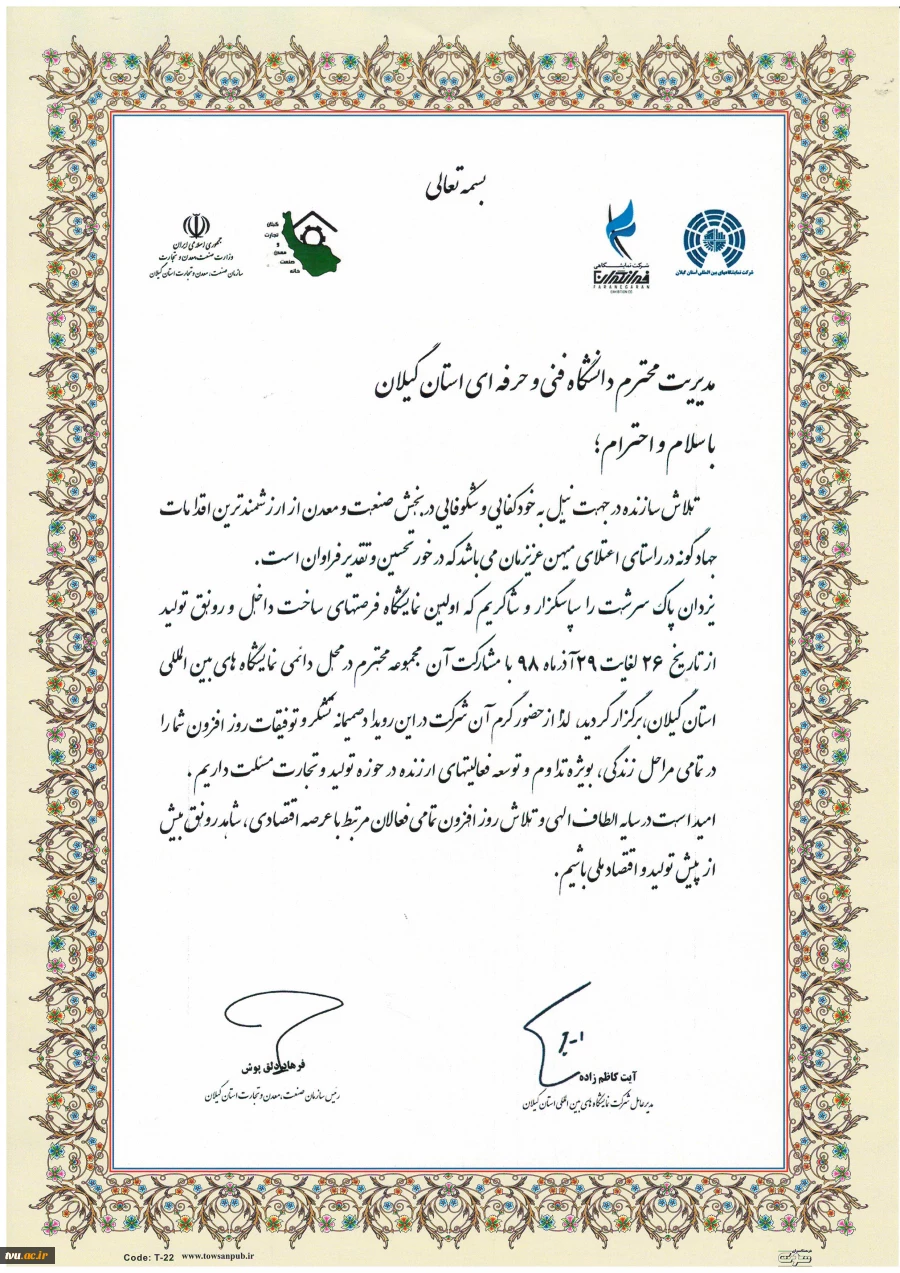 بسمه تعالی
شرکت نمایشگاههای بین المللی استان گیلان
شرکت نمایشگاهی
فرانگاران
FARANEGARAN
EXHIBITION CO
گیلان
تجارت
و
معدن
صنعت
خانه
جمهوری اسلامی ایران
وزارت صنعت، معدن و تجارت
سازمان صنعت، معدن و تجارت استان گیلان
مدیریت محترم دانشگاه فنی و حرفه ای استان گیلان
با سلام و احترام؛
تلاش سازنده در جهت نیل به خودکفایی و شکوفایی در بخش صنعت و معدن از ارزشمندترین اقدامات
جهادگونه در راستای اعتلای میهن عزیزمان می باشد که در خور تحسین و تقدیر فراوان است.
یزدان پاک سرشت را سپاسگزار و شاکریم که اولین نمایشگاه فرصتهای ساخت داخل و رونق تولید
از تاریخ ۲۶ لغایت ۲۹ آذرماه ۹۸ با مشارکت آن مجموعه محترم در محل دائمی نمایشگاه های بین المللی
استان گیلان، برگزار گردید، لذا از حضور گرم آن شرکت در این رویداد صمیمانه تشکر و توفیقات روز افزون شما را
در تمامی مراحل زندگی، بویژه تداوم و توسعه فعالیتهای ارزنده در حوزه تولید و تجارت مسئلت داریم.
امید است در سایه الطاف الهی و تلاش روز افزون تمامی فعالان مرتبط با عرصه اقتصادی، شاهد رونق بیش
از پیش تولید و اقتصاد ملی باشیم.
آیت کاظم زاده
مدیرعامل شرکت نمایشگاه های بین المللی استان گیلان
فرهاد دلق پوش
رئیس سازمان صنعت، معدن و تجارت استان گیلان
tvu.ac.ir
Code: T-22 www.towsanpub.ir